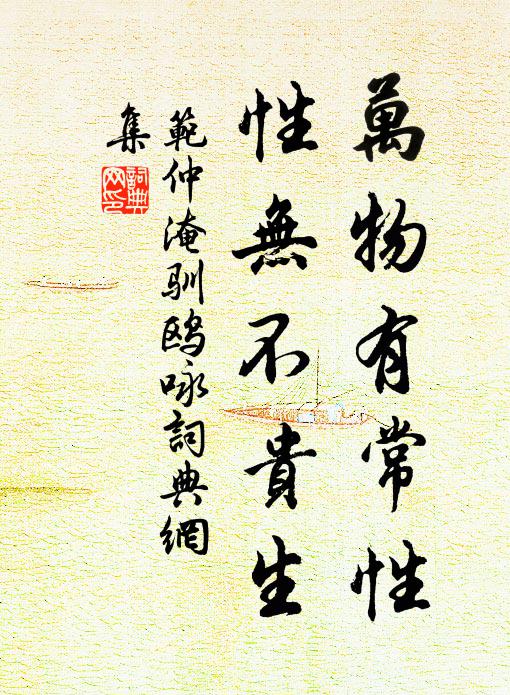 萬物有常性
性無不貴生
範仲淹馴鴎咏詞典網
集
詞典网印